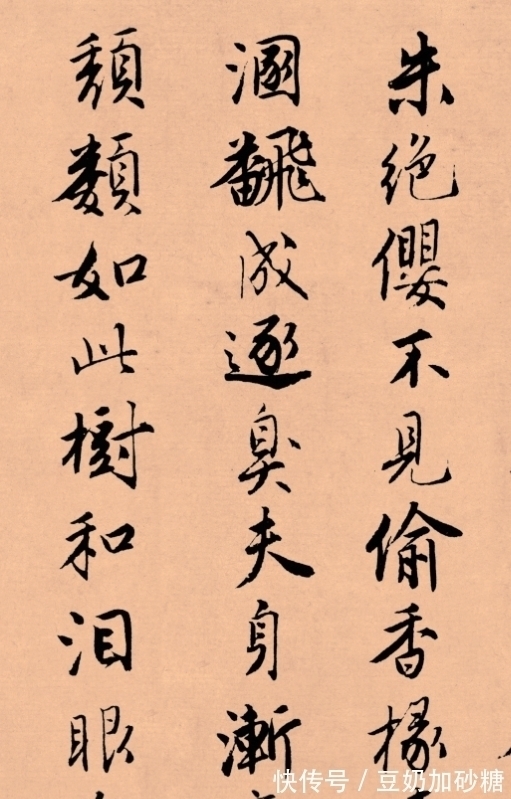 朱绝儸不見偷香椽
溷飜成逐臭夫身漸
頹類如此樹和泪眼
快传号/豆奶加砂糖